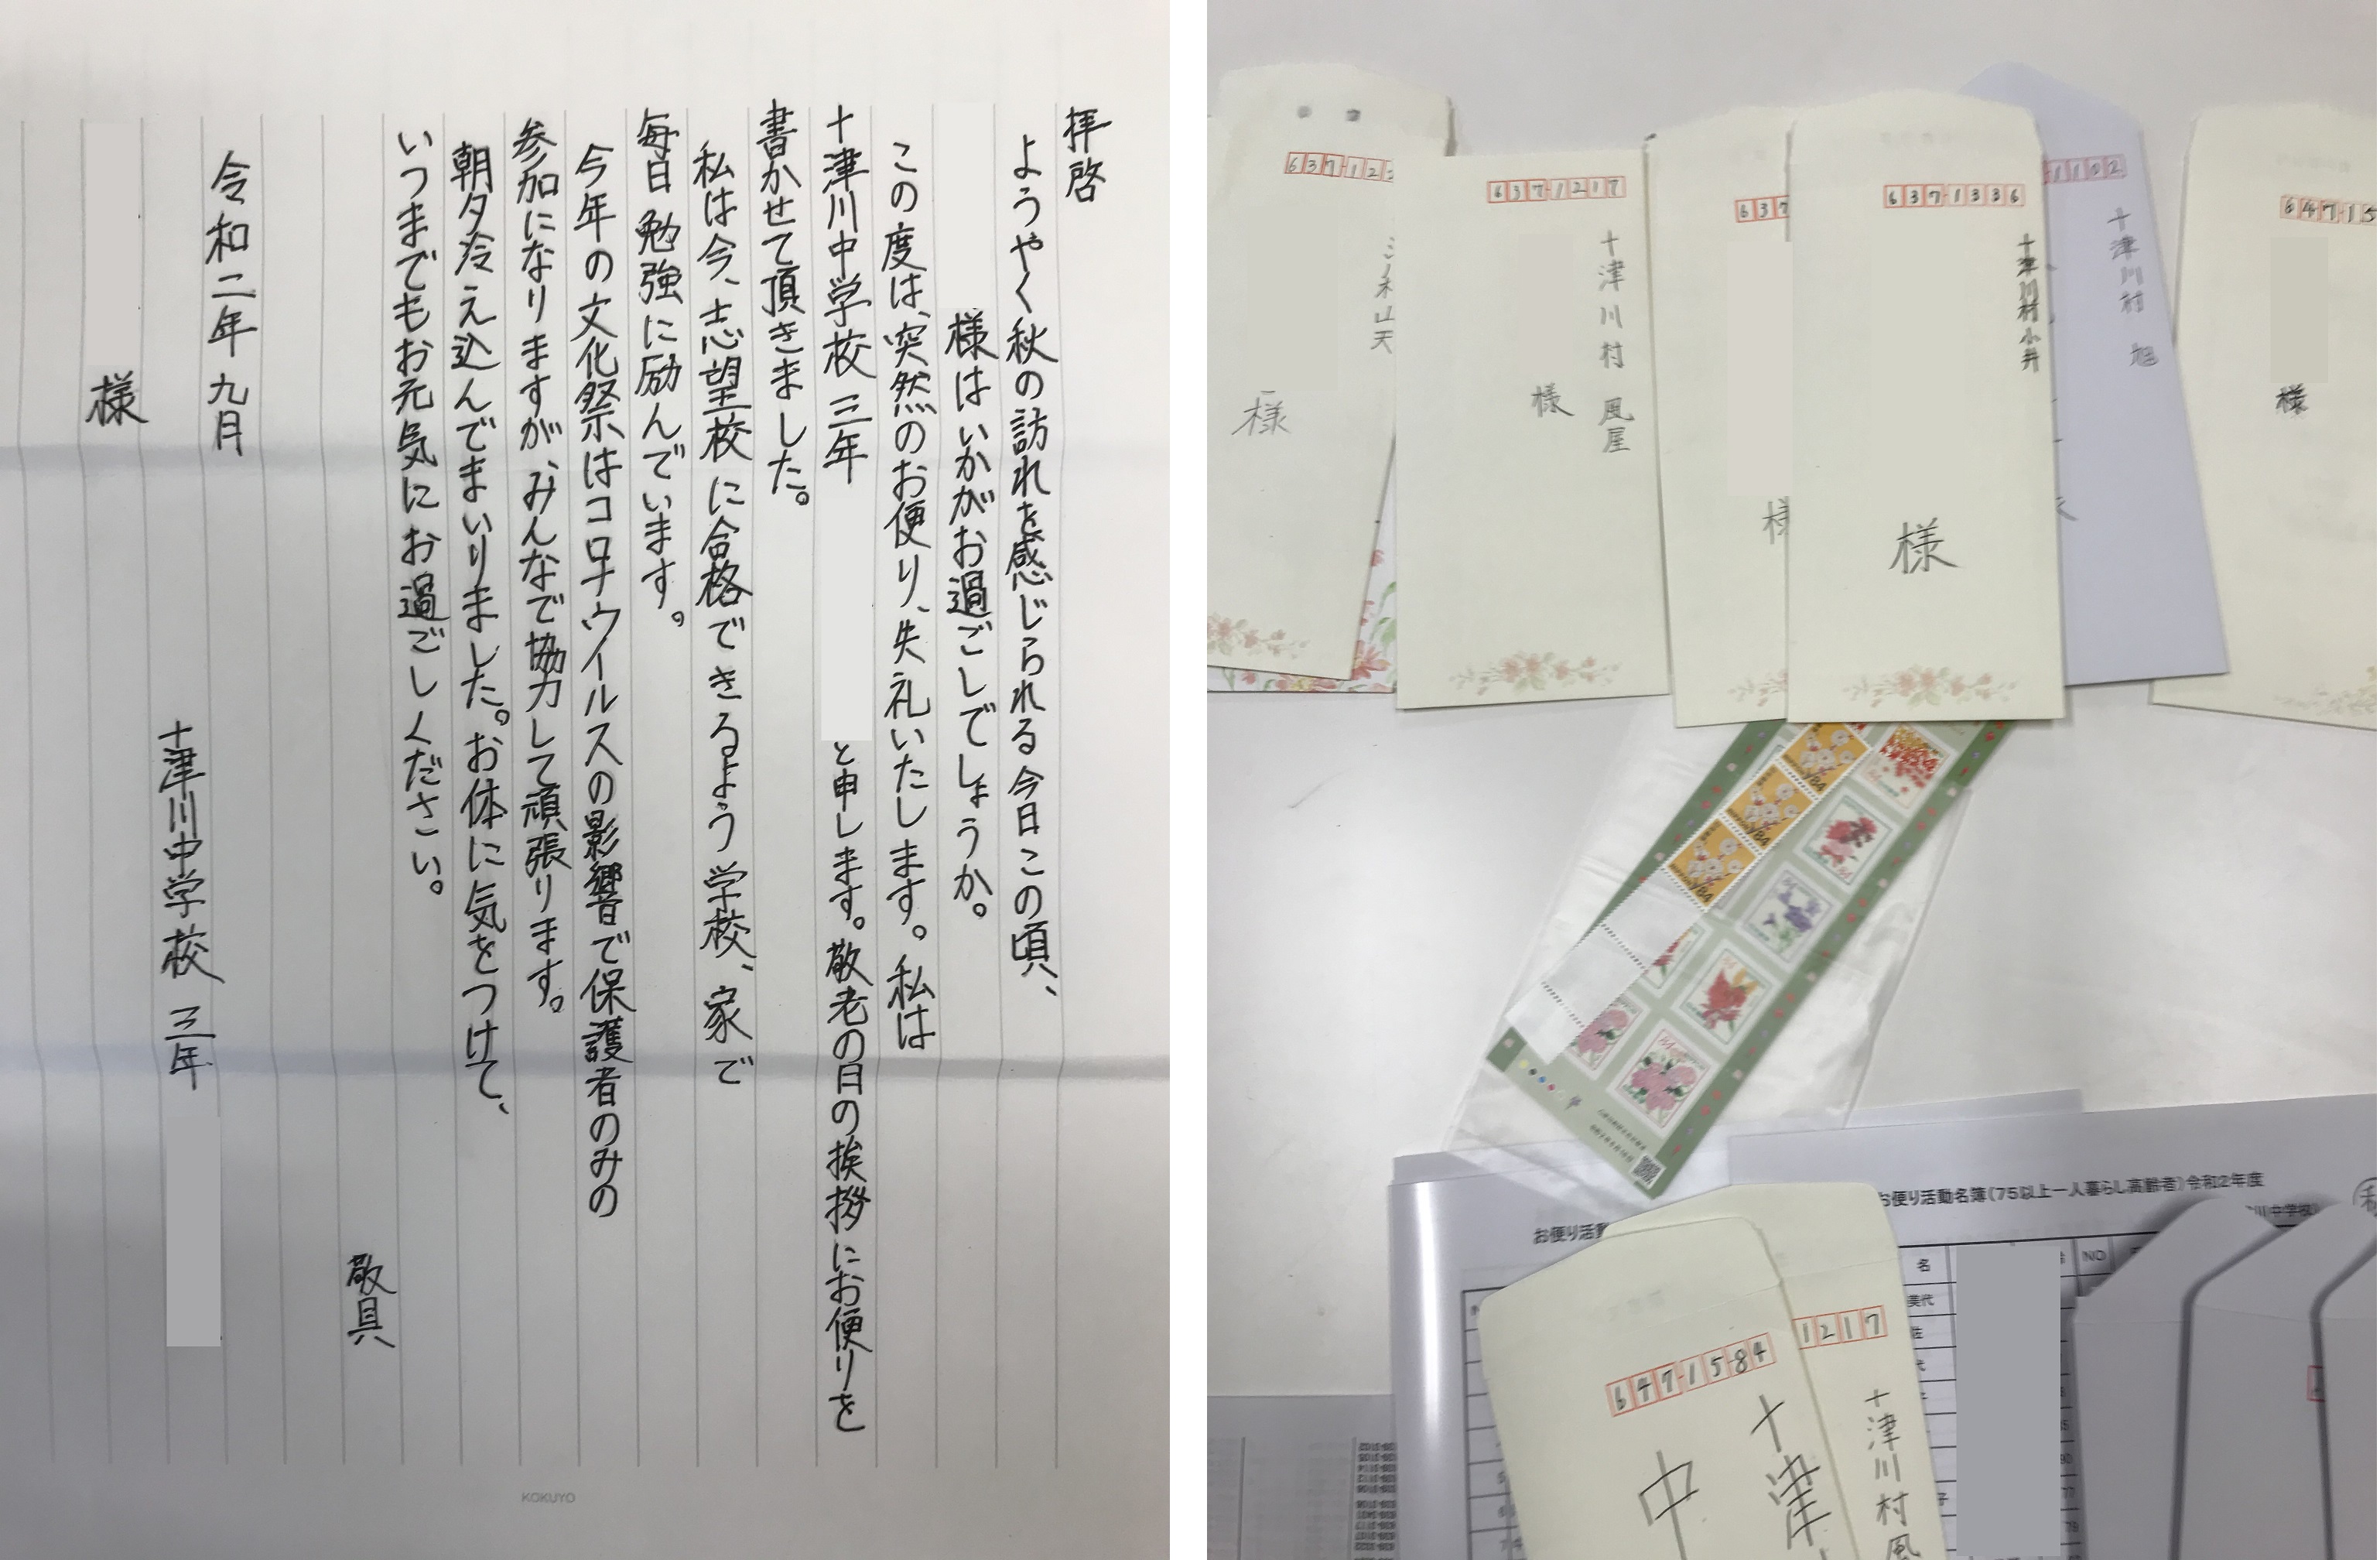 拝啓
ようやく秋の訪れを感じられる今日この頃、
様はいかがお過ごしでしょうか。
この度は、突然のお便り、失礼いたします。私は
十津川中学校 三年
と申します。敬老の日の挨拶にお便りを
書かせて頂きました。
私は今、志望校に合格できるよう学校、家で
毎日勉強に励んでいます。
今年の文化祭はコロナウイルスの影響で保護者のみの
参加になりますが、みんなで協力して頑張ります。
朝夕冷え込んでまいりました。お体に気をつけて、
いつまでもお元気にお過ごしください。
敬具
令和二年 九月
十津川中学校 三年
様
KOKUYO
637-12
様
637-1217
十津川村 風屋
様
637
様
637-1336
十津川村小井
様
1102
十津川村 旭
647-15
様
お便り活動名簿(75以上一人暮らし高齢者)令和2年度
川中学校
お便り活動
名
NO
美代
647-1584
十津
中
1217
十津川村風